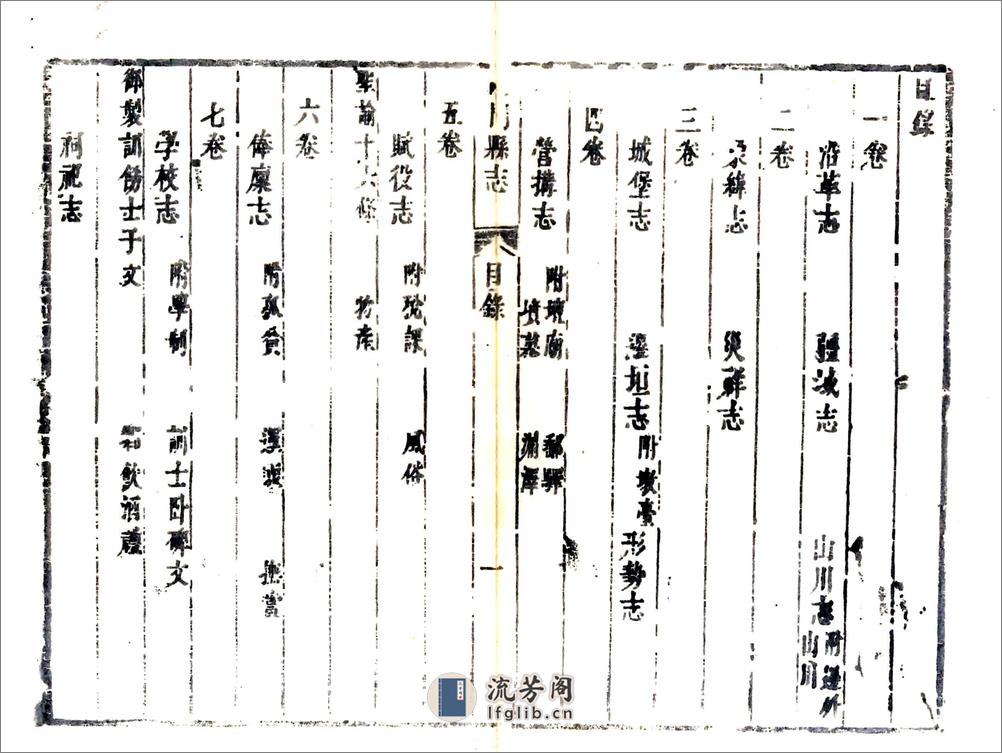 目錄
一卷
沿革志 疆域志 山川志 附邊外山川
二卷
象緯志 災祥志
三卷
城堡志 邊垣志 附墩臺 形勢志
四卷
營搆志 附壇廟 墳墓 郵驛
縣志 目錄 一
五卷
賦役志 附稅課 風俗
聖諭十六條 物產
六卷
俸廩志 附孤貧
七卷
學校志 附學制 訓士臥碑文
御製訓飭士子文 飲酒禮
祠祀志
流芳阁
lfglib.cn